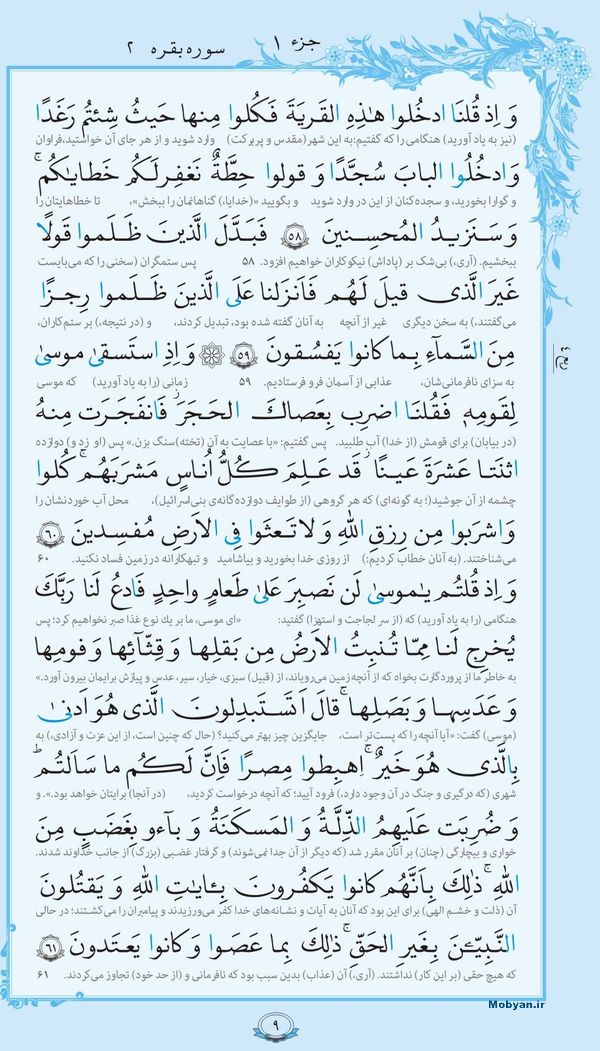 جزء ۱
سوره بقره ۲
وَ اِذ قُلنَا ادخُلوا هٰذِهِ القَریَةَ فَکُلوا مِنها حَیثُ شِئتُم رَغَدًا
(نیز به یاد آورید) هنگامی را که گفتیم: به این شهر (مقدس و پربرکت) وارد شوید و از هر جای آن خواستید، فراوان
وَادخُلُوا البابَ سُجَّدًا وَ قولوا حِطَّةٌ نَغفِر لَکُم خَطایاکُم ۚ
و گوارا بخورید، و سجده‌کنان از این در وارد شوید و بگویید «(خدایا،) گناهانمان را ببخش»، تا خطاهایتان را
وَ سَنَزیدُ المُحسِنینَ ﴿۵۸﴾ فَبَدَّلَ الَّذینَ ظَلَموا قَولًا
ببخشیم. (آری،) بی‌شک بر (پاداش) نیکوکاران خواهیم افزود. ۵۸ پس ستمگران (سخنی را که می‌بایست
غَیرَ الَّذی قیلَ لَهُم فَاَنزَلنا عَلَی الَّذینَ ظَلَموا رِجزًا
می‌گفتند،) به سخن دیگری غیر از آنچه به آنان گفته شده بود، تبدیل کردند، و (در نتیجه،) بر ستم‌کاران،
مِنَ السَّمآءِ بِما کانوا یَفسُقونَ ﴿۵۹﴾ وَ اِذِ استَسقیٰ موسیٰ
به سزای نافرمانی‌شان، عذابی از آسمان فرو فرستادیم. ۵۹ زمانی (را به یاد آورید) که موسی
لِقَومِهٖ فَقُلنَا اضرِب بِعَصاکَ الحَجَرَ ۖ فَانفَجَرَت مِنهُ
(در بیابان) برای قومش (از خدا) آب طلبید. پس گفتیم: «با عصایت به آن (تخته)سنگ بزن.» پس (او زد و) دوازده
اثنَتا عَشرَةَ عَینًا ۖ قَد عَلِمَ کُلُّ اُناسٍ مَشرَبَهُم ۚ کُلوا
چشمه از آن جوشید؛ به گونه‌ای) که هر گروهی (از طوایف دوازده‌گانه‌ی بنی‌اسرائیل)، محل آب خوردنشان را
وَاشرَبوا مِن رِزقِ اللهِ وَلا تَعثَوا فِی الاَرضِ مُفسِدینَ ﴿۶۰﴾
می‌شناختند. (به آنان خطاب کردیم:) از روزی خدا بخورید و بیاشامید و تبهکارانه در زمین فساد نکنید. ۶۰
وَ اِذ قُلتُم یٰموسیٰ لَن نَصبِرَ عَلیٰ طَعامٍ واحِدٍ فَادعُ لَنا رَبَّکَ
هنگامی (را به یاد آورید) که (از سر لجاجت و استهزا) گفتید: «ای موسی، ما بر یک نوع غذا صبر نخواهیم کرد؛ پس
یُخرِج لَنا مِمّا تُنبِتُ الاَرضُ مِن بَقلِها وَ قِثّآئِها وَ فومِها
به خاطر ما از پروردگارت بخواه که از آنچه زمین می‌رویاند، از (قبیل) سبزی، خیار، سیر، عدس و پیازش برایمان بیرون آورد.»
وَ عَدَسِها وَ بَصَلِها ۖ قالَ اَتَستَبدِلونَ الَّذی هُوَ اَدنیٰ
(موسی) گفت: «آیا آنچه را که پست‌تر است، جایگزین چیز بهتر می‌کنید؟ (حال که چنین است، از این عزت و آزادی،) به
بِالَّذی هُوَ خَیرٌ ۚ اِهبِطوا مِصرًا فَاِنَّ لَکُم ما سَاَلتُم ؕ
شهری (که درگیری و جنگ در آن وجود دارد،) فرود آیید؛ که آنچه درخواست کردید، (در آنجا) برایتان خواهد بود.» و
وَ ضُرِبَت عَلَیهِمُ الذِّلَّةُ وَ المَسکَنَةُ وَ بآءو بِغَضَبٍ مِنَ
خواری و بیچارگی (چنان) بر آنان مقرر شد (که دیگر از آن جدا نمی‌شوند) و گرفتار غضبی (بزرگ) از جانب خداوند شدند.
اللهِ ۚ ذٰلِکَ بِاَنَّهُم کانوا یَکفُرونَ بِـٔایٰتِ اللهِ وَ یَقتُلونَ
آن (ذلت و خشم الهی) برای این بود که آنان به آیات و نشانه‌های خدا کفر می‌ورزیدند و پیامبران را می‌کشتند؛ در حالی
النَّبِیّٖنَ بِغَیرِ الحَقِّ ۚ ذٰلِکَ بِما عَصَوا وَ کانوا یَعتَدونَ ﴿۶۱﴾
که هیچ حقی (بر این کار) نداشتند. (آری،) آن (عذاب) بدین سبب بود که نافرمانی و (از حد خود) تجاوز می‌کردند. ۶۱
Mobyan.ir
۹